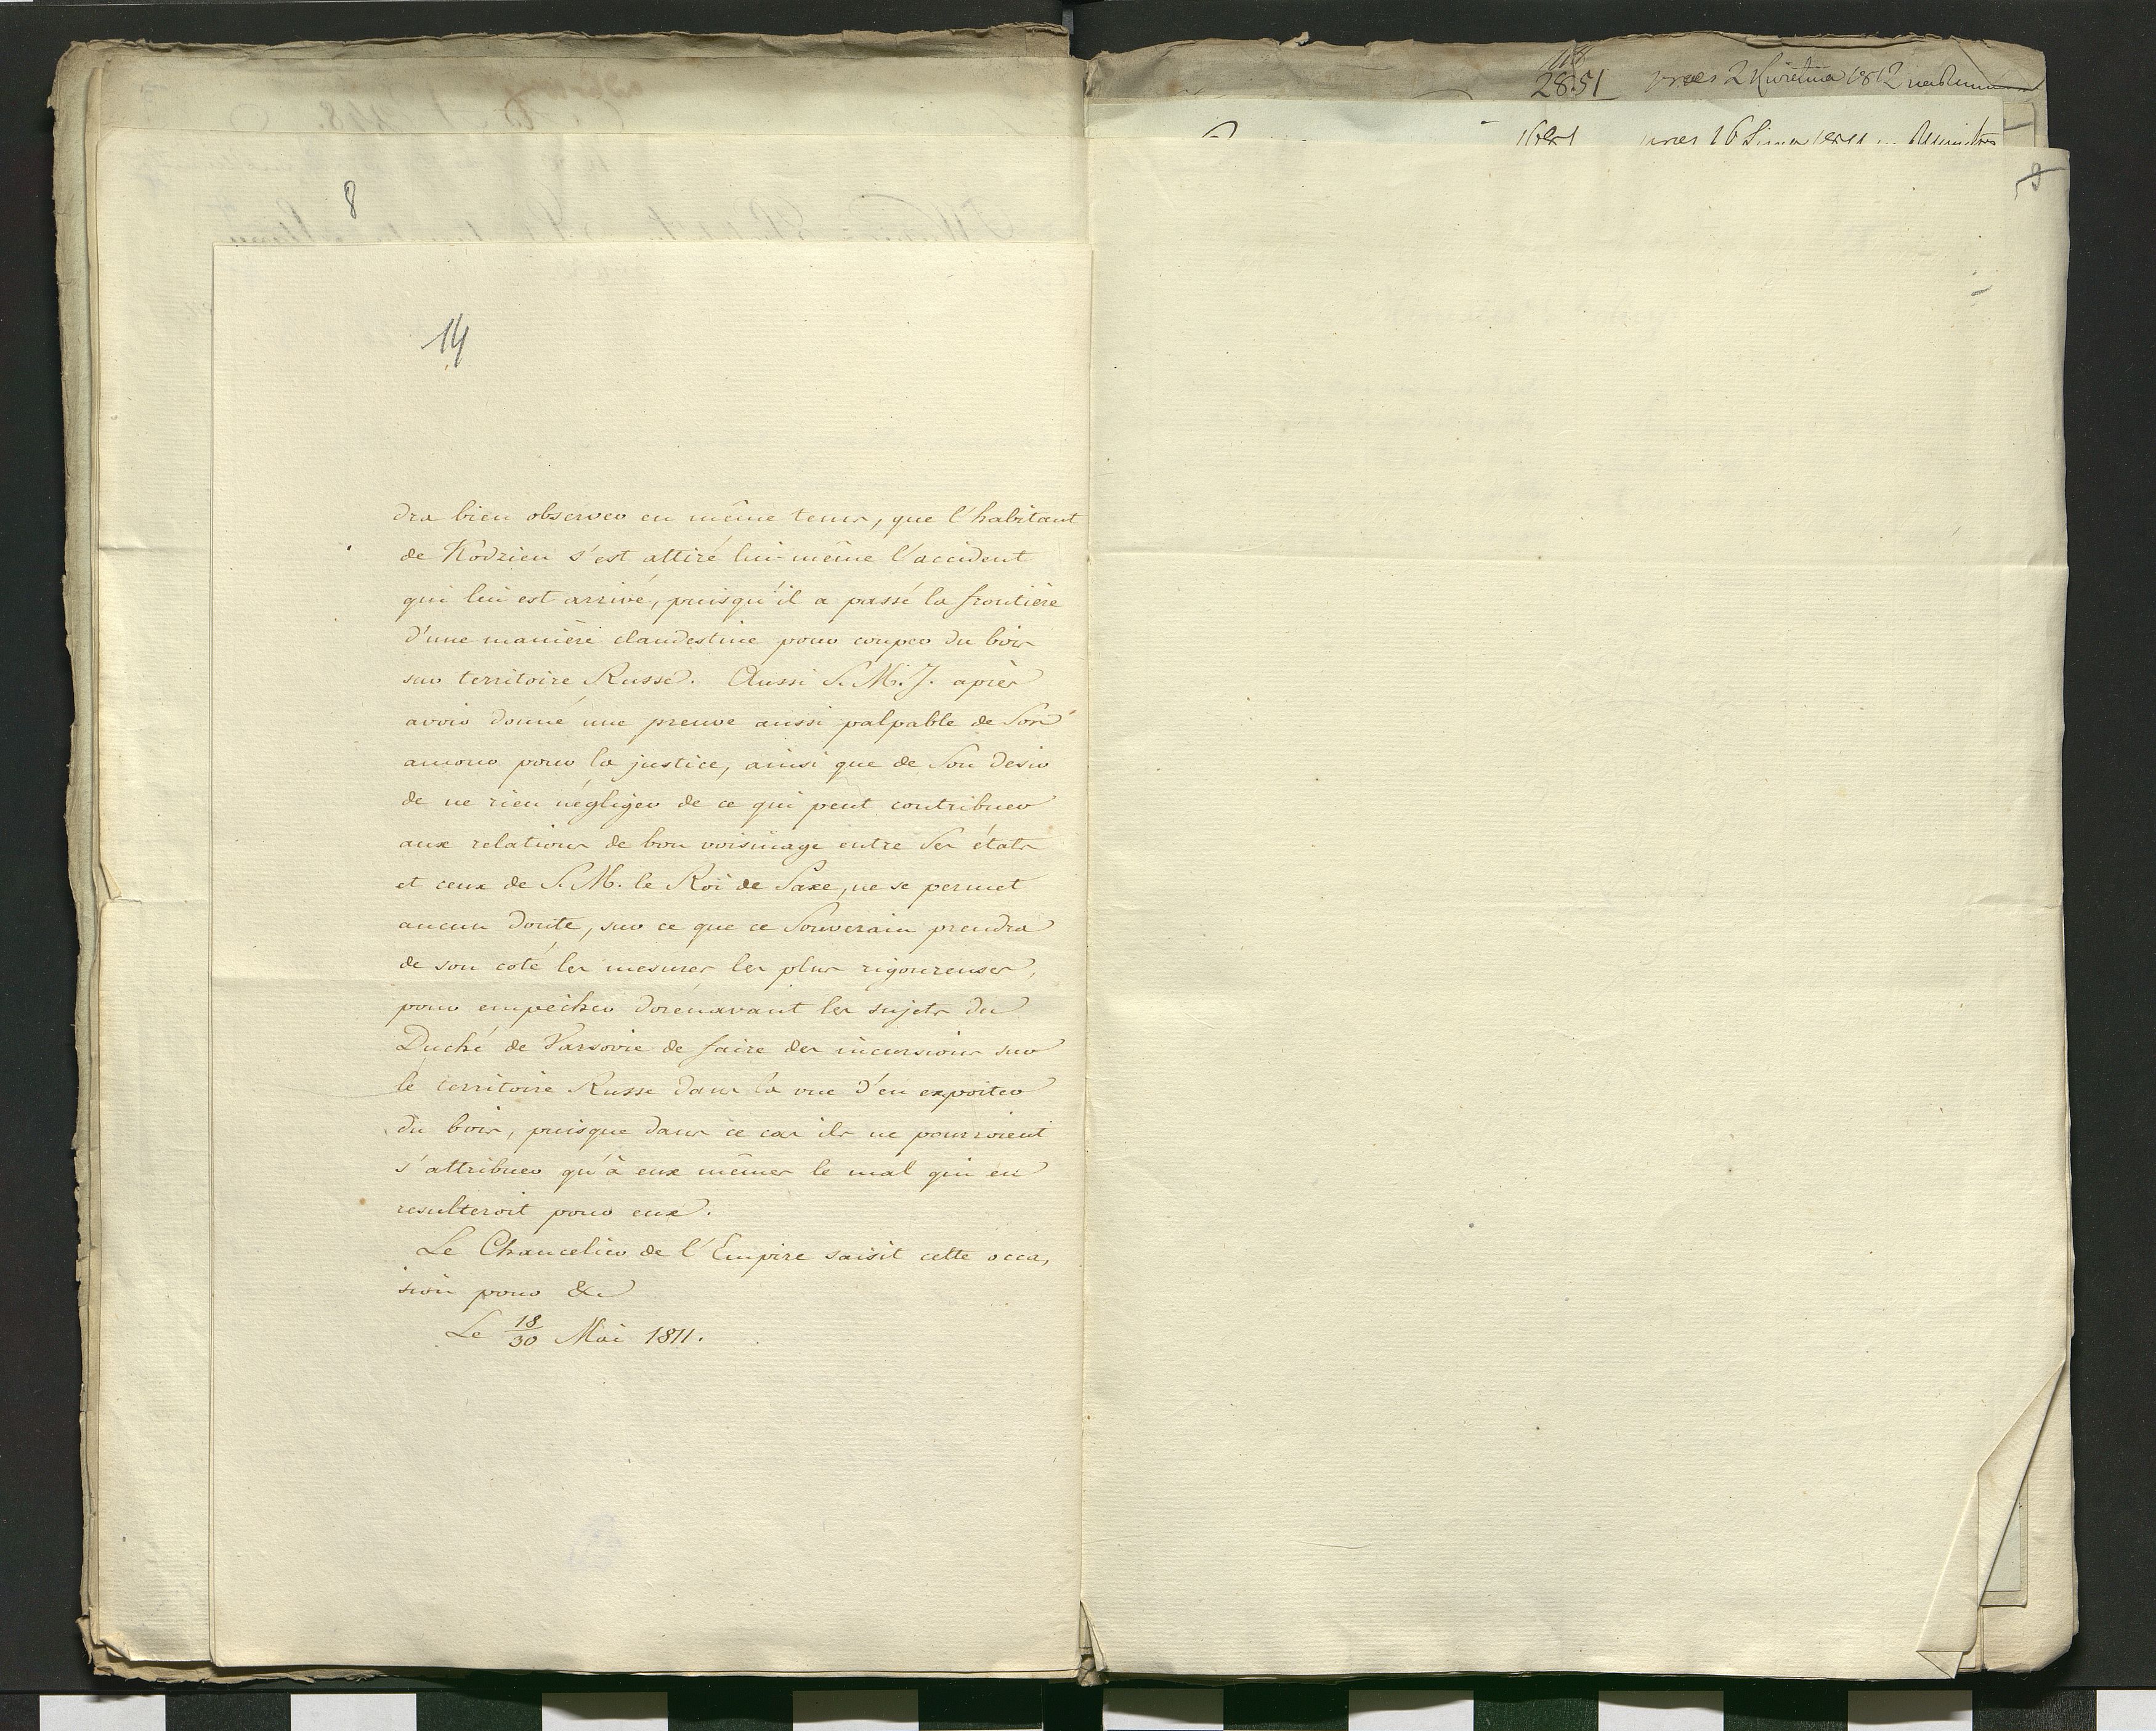 8
14
dra bien observer en même tems, que l'habitant
de Kodzien s'est attiré lui-même l'accident
qui lui est arrivé, puisqu'il a passé la frontière
d'une manière clandestine pour couper du bois
sur territoire Russe. Aussi S. M. J. après
avoir donné une preuve aussi palpable de Son
amour pour la justice, ainsi que de Son desir
de ne rien négliger de ce qui peut contribuer
aux relations de bon voisinage entre Ses états
et ceux de S. M. le Roi de Saxe, ne se permet
aucun doute, sur ce que ce Souverain prendra
de son coté les mesures les plus rigoureuses,
pour empêcher dorenavant les sujets du
Duché de Varsovie de faire des incursions sur
le territoire Russe dans la vue d'en exporter
du bois, puisque dans ce cas ils ne pourroient
s'attribuer qu'à eux mêmes le mal qui en
resulteroit pour eux.
Le Chancelier de l'Empire saisit cette occa,
sion pour &c
Le 18/30 Mai 1811.
2851 praes 2 Kwietnia 1812
praes 16
9